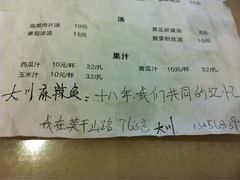 汤
海菜肉片汤 10元 黄瓜皮蛋汤
番茄浓汤 15元 酸菜粉丝汤
果汁
西瓜汁 10元/杯 32/扎 青瓜汁 10元/杯 32/扎
玉米汁 10元/杯 32/扎
大川麻辣鱼:十八年,我们共同的记忆
我在莫干山路763号 大川